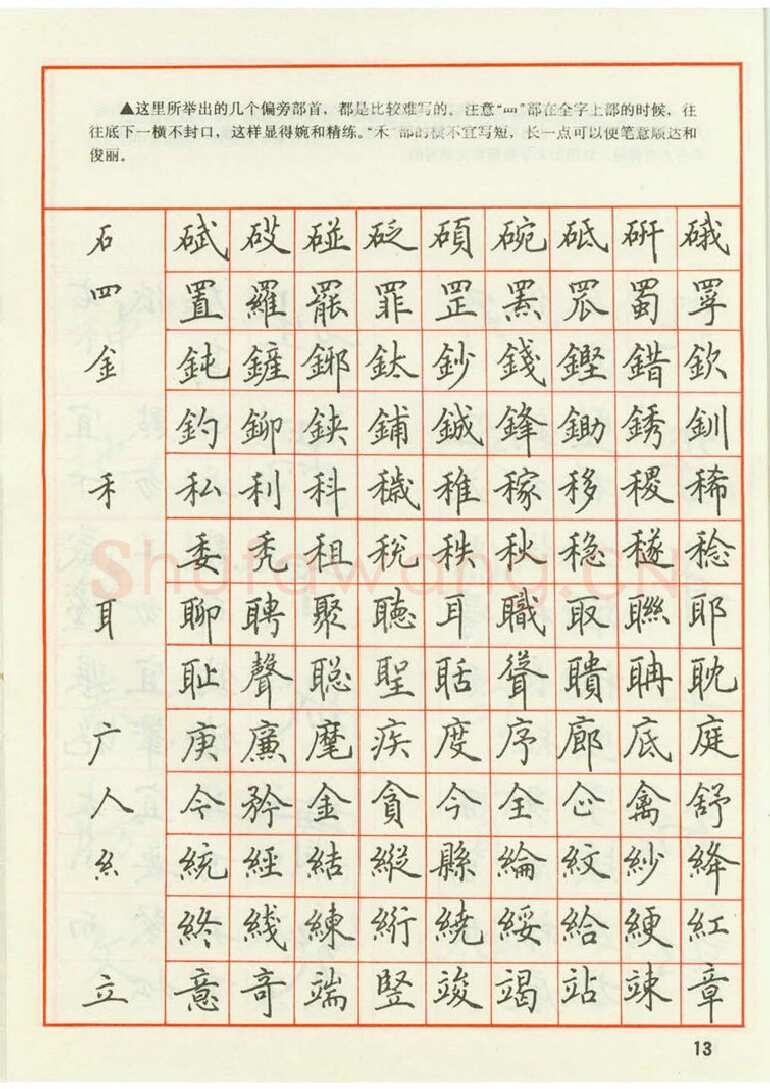 ▲这里所举出的几个偏旁部首，都是比较难写的。注意“罒”部在全字上部的时候，往
往底下一横不封口，这样显得婉和精练。“禾”部的横不宜写短，长一点可以使笔意顺达和
俊丽。
石 碔 砐 碰 砭 碩 碗 砥 硏 硪
罒 置 羅 罷 罪 罡 羆 罛 蜀 罦
金 鈍 鏟 鎯 鈦 鈔 錢 鏗 錯 欽
釣 鉚 鋏 鋪 鋮 鋒 鋤 銹 釧
禾 私 利 科 穢 稚 稼 移 稷 稀
委 秃 租 稅 秩 秋 稳 穟 稔
耳 聊 聘 聚 聽 耳 職 取 聯 耶
耻 聲 聪 聖 聒 聳 聵 聃 耽
广 庚 廉 麾 疾 度 序 廊 底 庭
人 令 矜 金 貪 今 全 企 禽 舒
糹 統 經 結 縱 縣 綸 紋 紗 絳
終 綫 練 絎 繞 綏 給 綆 紅
立 意 竒 端 竪 竣 竭 站 竦 章
Shufawang.CN
13